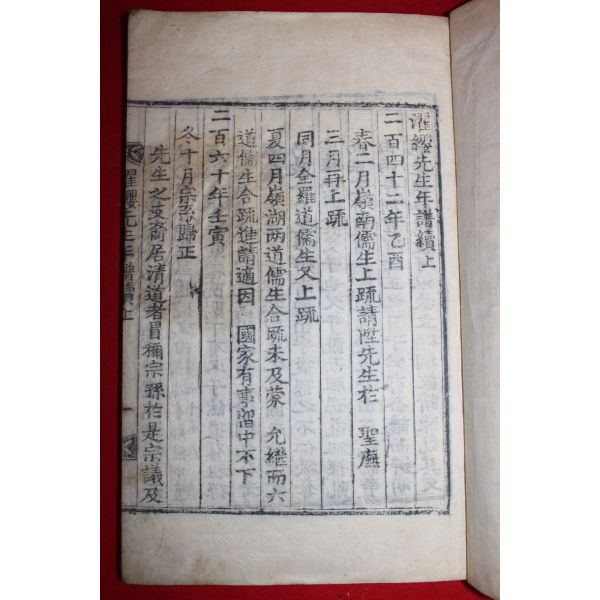 濯纓先生年譜續上
二百四十二年乙酉
春二月嶺南儒生上疏請陞先生於 聖廡
三月再上疏
同月全羅道儒生又上疏
夏四月嶺湖两道儒生合疏未及蒙 允繼而六
道儒生合疏進請適因 國家有事留中不下
二百六十年壬寅
冬十月宗 歸正
先生之支裔居清道者冒稱宗孫於是宗議及
濯纓先生年譜續上